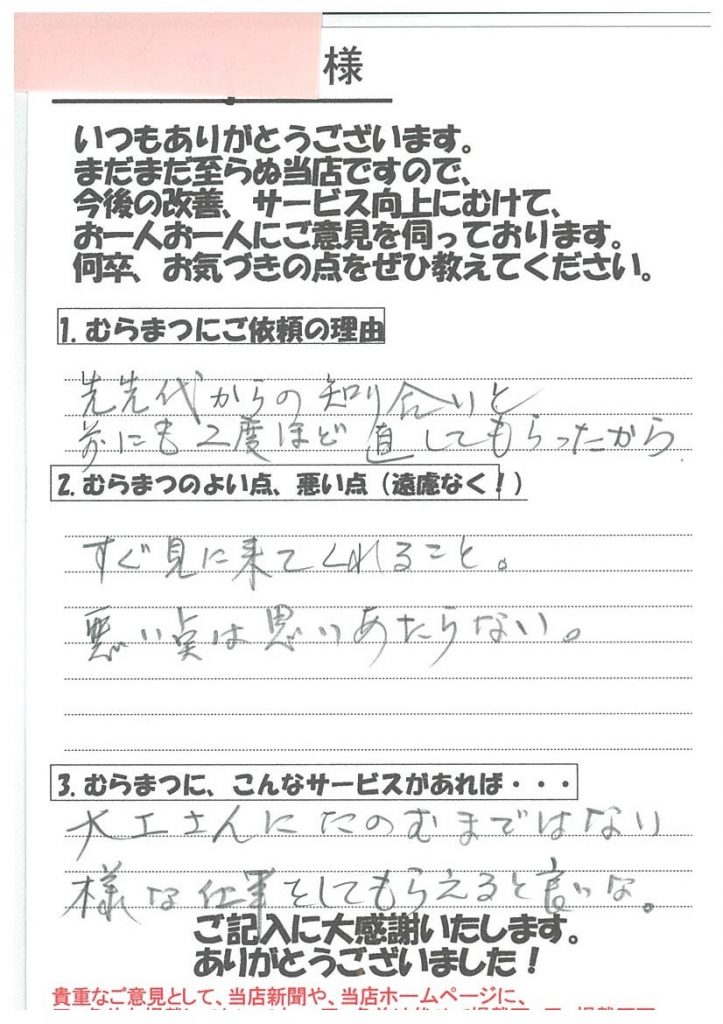 様
いつもありがとうございます。
まだまだ至らぬ当店ですので、
今後の改善、サービス向上にむけて、
お一人お一人にご意見を伺っております。
何卒、お気づきの点をぜひ教えてください。
1. むらまつにご依頼の理由
先先代からの知り合いと
前にも2度ほど直してもらったから
2. むらまつのよい点、悪い点（遠慮なく！）
すぐ見に来てくれること。
悪い点は思いあたらない。
3. むらまつに、こんなサービスがあれば・・・
大工さんにたのむまではない
様な仕事をしてもらえると言いな。
ご記入に大感謝いたします。
ありがとうございました！
貴重なご意見として、当店新聞や、当店ホームページに、